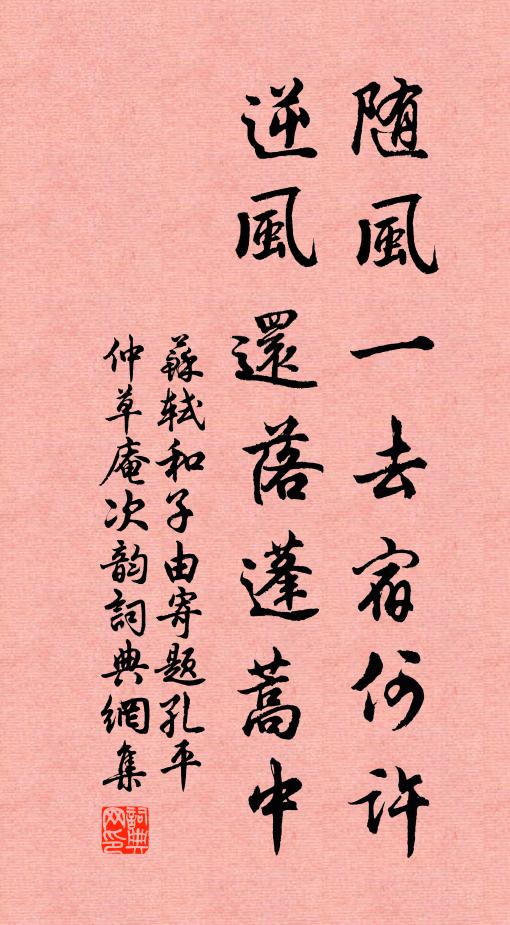 随風一去宿何許
逆風還落蓬蒿中
蘇軾和子由寄題孔平
仲草庵次韵詞典網集
詞典
网印